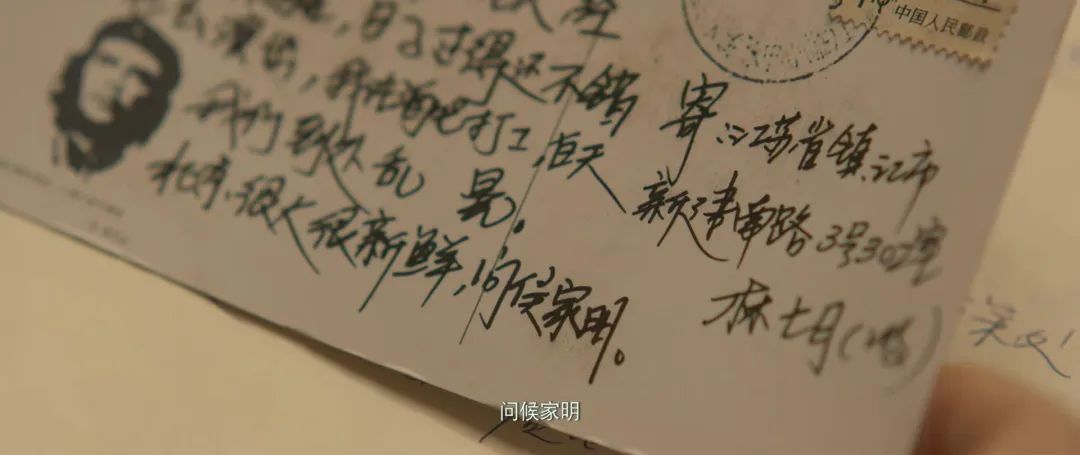 日子过得还不错
演出，我在酒吧打工，白天
我们到处乱晃。
北京很大很新鲜，问候家明。
中国人民邮政
寄：江苏省镇江市
南路3号302室
林七月(收)
问候家明